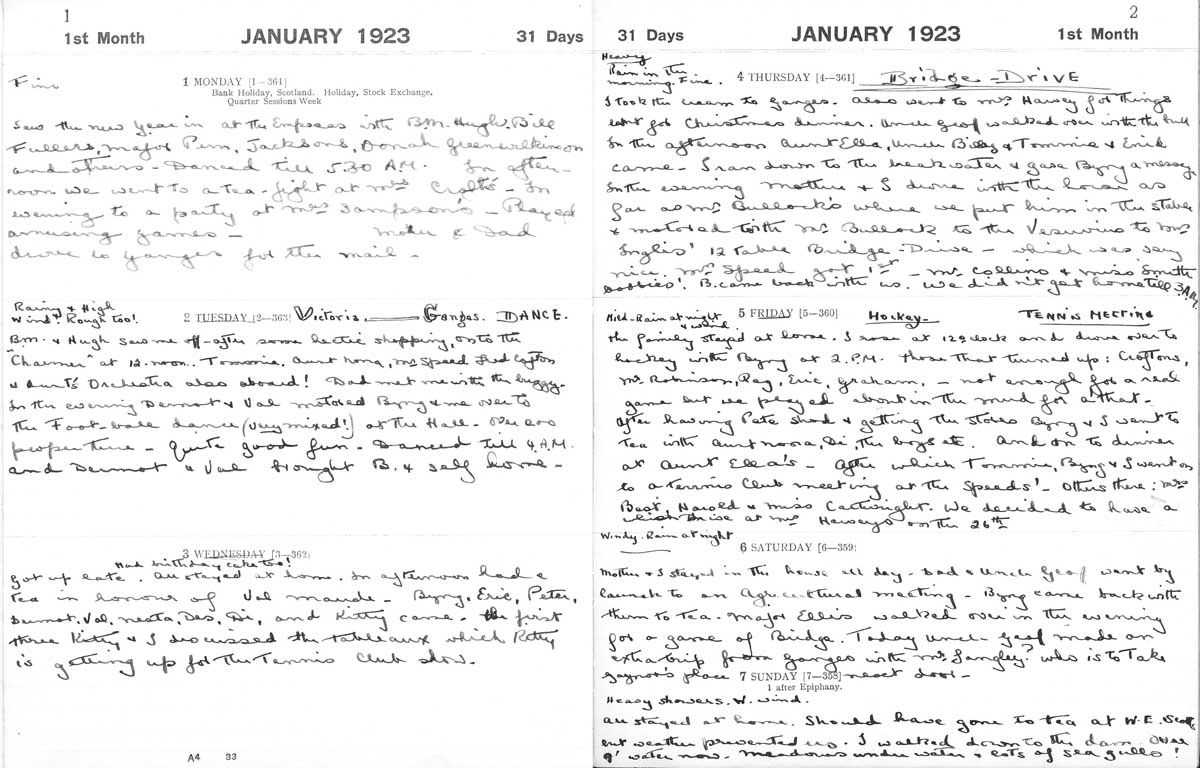 1
1st Month JANUARY 1923 31 Days
Fine
1 MONDAY [1—364]
Bank Holiday, Scotland. Holiday, Stock Exchange.
Quarter Sessions Week
Saw the new Year in at the Empress with B.M. Hugh, Bill
Fullers, Major Penn, Jacksons, Oonah Greenwilkinson
and others - Danced till 5.30 A.M. In after-
noon we went to a tea-fight at Mrs - In
evening to a party at Mrs Sampson's - Played
amusing games - Mother & Dad
drove to Ganges for the mail -
Rainy & High
Wind? Rough too!
2 TUESDAY [2—363] Victoria — Ganges. DANCE.
B.M. & Hugh saw me off - after some hectic shopping, onto the
"Charmer" at 12. noon. Tommie, Aunt Nona, Mrs Speed
& Aunt's Orchestra also aboard! Dad met me with the buggy.
In the evening Dermot & Val motored Byng & me over to
the Foot-ball dance (very mixed!) at the Hall. Over 200
people there - Quite good fun. Danced till 4 A.M.
and Dermot & Val brought B. & self home -
3 WEDNESDAY [3—362]
Had birthday cake too!
Got up late. All stayed at home. In afternoon had a
tea in honour of Val Maude - Byng, Eric, Peter,
Dermot, Val, Nesta, Des, Di, and Kitty came - the first
three Kitty & I discussed the tableaux which Kitty
is getting up for the Tennis Club show.
A4 33
2
31 Days JANUARY 1923 1st Month
Heavy
Rain in the
morning. Fine.
4 THURSDAY [4—361] Bridge - Drive
I took the cream to Ganges. Also went to Mrs Harvey for things
lent for Christmas dinner. Uncle Geof walked over with the bull
In the afternoon Aunt Ella, Uncle Billy & Tommie & Eric
came - I ran down to the breakwater & gave Byng a message
In the evening Mother & I drove with the horse as
far as Mrs Bullock's where we put him in the stable
& motored with Mr Bullock to the Vesuvius to Mrs
Inglis' 12 table Bridge - Drive - which was very
nice. Mrs Speed got 1st - Mr Collins & Miss Smith
boobies! B. came back with us. We didn't get home till 3 A.M.
Mild - Rain at night
& wind.
5 FRIDAY [5—360] Hockey - TENNIS MEETING
The family stayed at home. I rose at 12 oclock and drove over to
hockey with Byng at 2. P.M. Those that turned up: Croftons,
Mr Robinson, Ray, Eric, Graham, - not enough for a real
game but we played about in the mud for a' that -
After having Pete shod & getting the stores Byng & I went to
tea with Aunt Nona, Di, the boys etc. And on to dinner
at Aunt Ella's - After which Tommie, Byng & I went on
to a Tennis Club meeting at the Speeds' - Others there: Mrs
Best, Harold & Miss Cartwright. We decided to have a
whist drive at Mrs Harvey's on the 26th
Windy. Rain at night
6 SATURDAY [6—359]
Mother & I stayed in the house all day - Dad & Uncle Geof went by
launch to an Agricultural meeting - Byng came back with
them to tea. Major Ellis walked over in the evening
for a game of Bridge. Today Uncle Geof made an
extra trip from Ganges with Mr Langley? who is to take
Gaynor's place next door -
7 SUNDAY [7—358]
1 after Epiphany.
Heavy showers. W. wind.
All stayed at home. Should have gone to tea at W.E. Scott
but weather prevented us. I walked down to the dam. Over
9' water now. Meadows under water & lots of sea gulls!